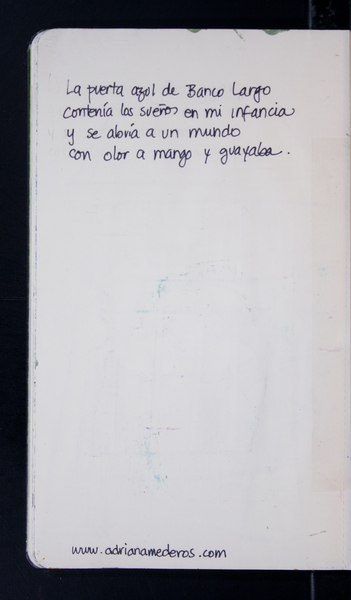 La puerta azul de Banco Largo
contenía los sueños en mi infancia
y se abría a un mundo
con olor a mango y guayaba.
www.adrianamederos.com